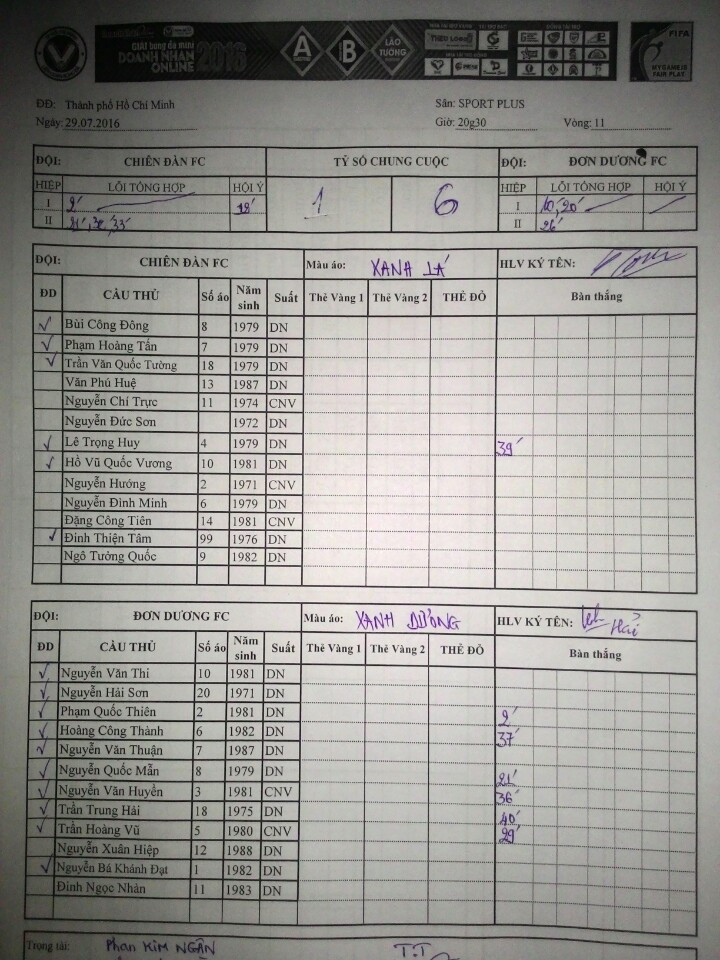 GIẢI bóng đá mini
DOANH NHÂN 2016
ONLINE
A
B
LÀO TƯỞNG
FIFA
MY GAME IS
FAIR PLAY
ĐĐ: Thành phố Hồ Chí Minh Sân: SPORT PLUS
Ngày: 29.07.2016 Giờ: 20g30 Vòng: 11
ĐỘI: CHIÊN ĐÀN FC TỶ SỐ CHUNG CUỘC ĐỘI: ĐƠN DƯƠNG FC
HIỆP LỖI TỔNG HỢP HỘI Ý 1 6 HIỆP LỖI TỔNG HỢP HỘI Ý
I 2' 18' I 10', 20'
II 21', 32', 33' II 26'
ĐỘI: CHIÊN ĐÀN FC Màu áo: XANH LÁ HLV KÝ TÊN:
ĐD CẦU THỦ Số áo Năm sinh Suất Thẻ Vàng 1 Thẻ Vàng 2 THẺ ĐỎ Bàn thắng
✓ Bùi Công Đông 8 1979 DN
✓ Phạm Hoàng Tấn 7 1979 DN
✓ Trần Văn Quốc Tường 18 1979 DN
Văn Phú Huệ 13 1987 DN
Nguyễn Chí Trực 11 1974 CNV
Nguyễn Đức Sơn 1972 DN
✓ Lê Trọng Huy 4 1979 DN 39'
✓ Hồ Vũ Quốc Vương 10 1981 DN
Nguyễn Hướng 2 1971 CNV
Nguyễn Đình Minh 6 1979 DN
Đặng Công Tiên 14 1981 CNV
✓ Đinh Thiện Tâm 99 1976 DN
Ngô Tưởng Quốc 9 1982 DN
ĐỘI: ĐƠN DƯƠNG FC Màu áo: XANH DƯƠNG HLV KÝ TÊN: Hải
ĐD CẦU THỦ Số áo Năm sinh Suất Thẻ Vàng 1 Thẻ Vàng 2 THẺ ĐỎ Bàn thắng
✓ Nguyễn Văn Thi 10 1981 DN
✓ Nguyễn Hải Sơn 20 1971 DN
✓ Phạm Quốc Thiên 2 1981 DN 2'
✓ Hoàng Công Thành 6 1982 DN 37'
✓ Nguyễn Văn Thuận 7 1987 DN
✓ Nguyễn Quốc Mẫn 8 1979 DN 21'
✓ Nguyễn Văn Huyền 3 1981 CNV 36'
✓ Trần Trung Hải 18 1975 DN 40'
✓ Trần Hoàng Vũ 5 1980 CNV 29'
Nguyễn Xuân Hiệp 12 1988 DN
✓ Nguyễn Bá Khánh Đạt 1 1982 DN
Đinh Ngọc Nhàn 11 1983 DN
Trọng tài: Phan KIM NGÂN T.T